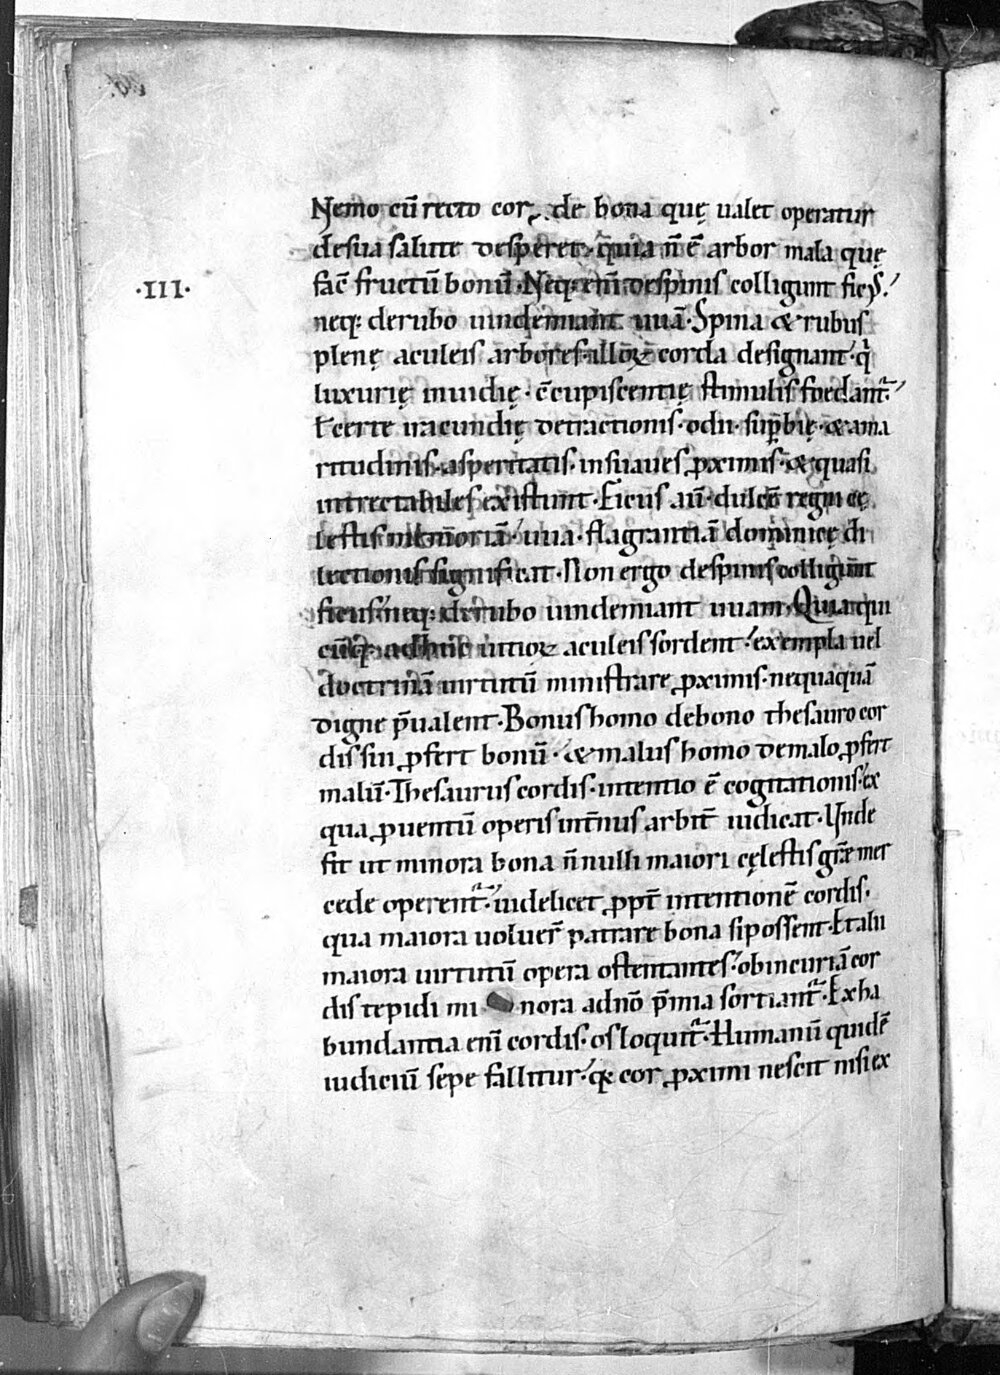 Nemo cū recto corde bona quę ualet operatur
de sua salute desperet. quia n̄ ē arbor mala quę
·III·
fac̄ fructū bonū. Neq; eni᷒ de spinis colligunt fic᷒
neq; de rubo uindemiant uuā. Spina & rubus
plenę aculeis arbores. illoꝝ corda designant. q̇
luxurię inuidię. c̄cupiscentię stimulis foedant᷑.
ł certe iracundię detractionis. odii. sup̄bię. & ama
ritudinis. asperitatis. insuaues ꝓximis. & quasi
intrectabiles existunt. Ficus aū. dulcē regni cę
lestis memoriā. uua. flagrantiā dominicę di
lectionis significat. Non ergo de spinis colligunt
ficus. neq; de rubo uindemiant uuam. Quia qui
cūq; adhuc uitioꝝ aculeis sordent. exempla uel
doctrinā uirtutū ministrare ꝓximis. nequaquā
digne p̄ualent. Bonus homo de bono thesauro cor
dis sui ꝓfert bonū. & malus homo de malo ꝓfert
malū. Thesaurus cordis. intentio ē cogitationis. ex
qua ꝓuentū operis int̄nus arbit̄ iudicat. Unde
fit ut minora bona n̄nulli maiori cęlestis gr̄ę mer
cede operent᷑. uidelicet ꝓpt̄ intentionē cordis.
qua maiora uoluer̄ patrare bona si possent. Et alii
maiora uirtutū opera ostentantes. ob incuriā cor
dis tepidi minora a dn̄o p̄mia sortiant᷑. Ex ha
bundantia eni᷒ cordis. os loquit᷑. Humanū quidē
iudiciū sepe fallitur. q; cor ꝓximi nescit nisi ex